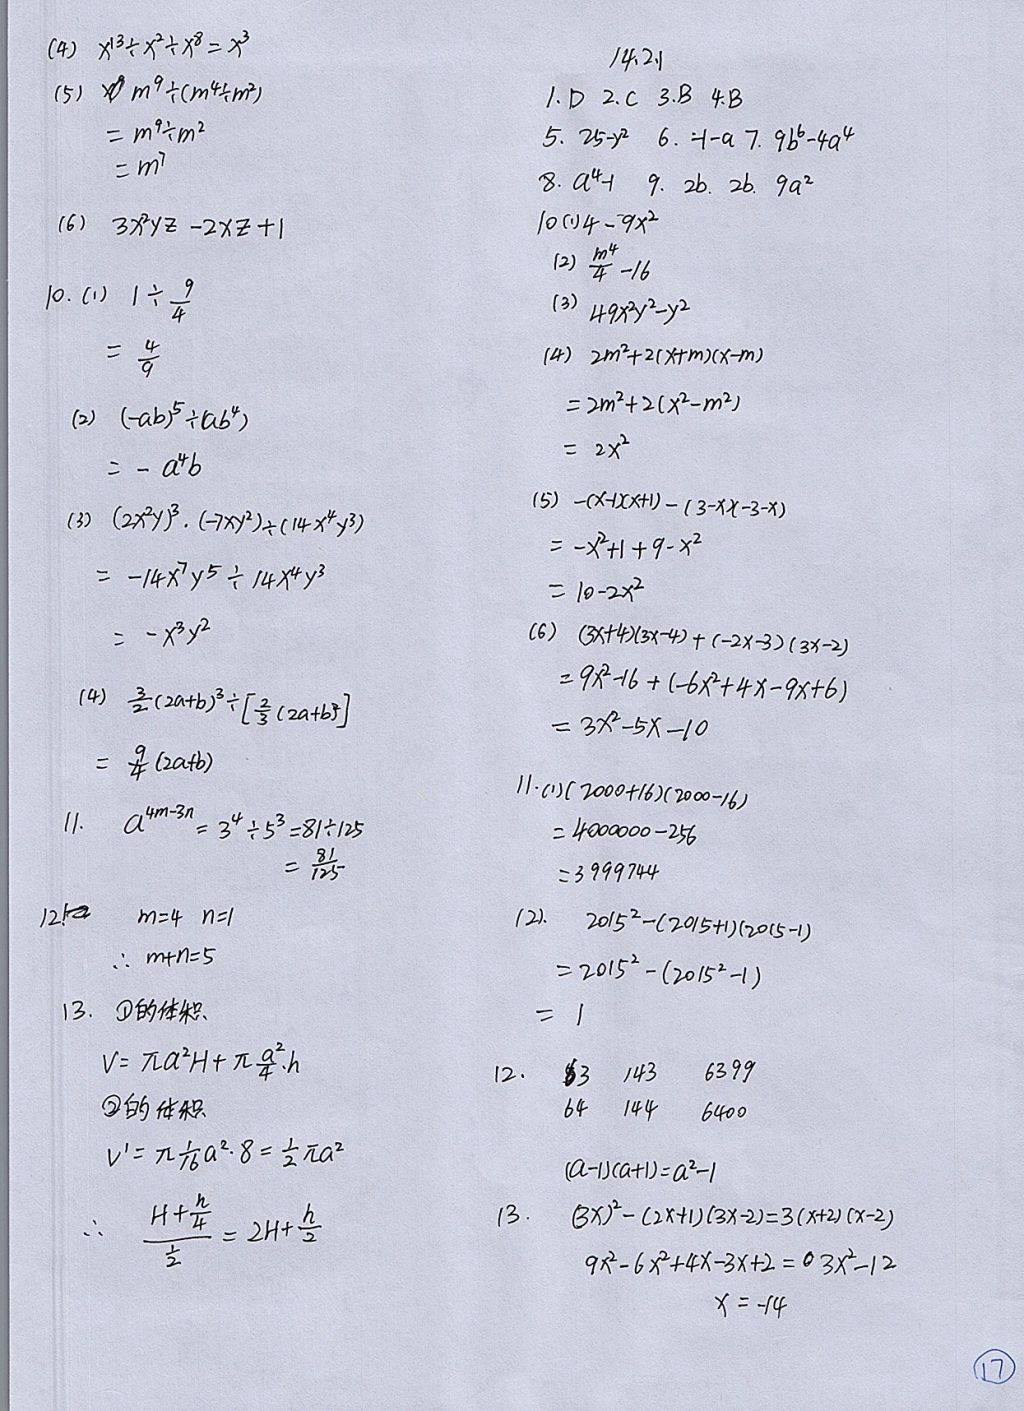 (4) x¹³÷x²÷x⁸=x³
(5) m⁹÷(m⁴÷m²)
= m⁹÷m²
= m⁷
(6) 3x²yz-2xz+1
10.(1) 1÷9/4
= 4/9
(2) (-ab)⁵÷(ab⁴)
= -a⁴b
(3) (2x²y)³·(-7xy²)÷(14x⁴y³)
= -14x⁷y⁵÷14x⁴y³
= -x³y²
(4) 3/2(2a+b)³÷[2/3(2a+b)²]
= 9/4(2a+b)
11. a⁴ᵐ⁻³ⁿ=3⁴÷5³=81÷125
= 81/125
12. m=4 n=1
∴ m+n=5
13. ①的体积
V=πa²H+π a²/4·h
②的体积
V'=π 1/16 a²·8=1/2πa²
∴ (H+h/4)/(1/2)=2H+h/2
14.2.1
1.D 2.C 3.B 4.B
5. 25-y² 6. -1-a 7. 9b⁶-4a⁴
8. a⁴-1 9. 2b. 2b. 9a²
10(1)4-9x²
(2) m⁴/4-16
(3) 49x²y²-y²
(4) 2m²+2(x+m)(x-m)
=2m²+2(x²-m²)
= 2x²
(5) -(x-1)(x+1)-(3-x)(-3-x)
= -x²+1+9-x²
= 10-2x²
(6) (3x+4)(3x-4)+(-2x-3)(3x-2)
=9x²-16+(-6x²+4x-9x+6)
= 3x²-5x-10
11.(1)(2000+16)(2000-16)
=4000000-256
=3999744
(2). 2015²-(2015+1)(2015-1)
=2015²-(2015²-1)
= 1
12. 63 143 6399
64 144 6400
(a-1)(a+1)=a²-1
13. (3x)²-(2x+1)(3x-2)=3(x+2)(x-2)
9x²-6x²+4x-3x+2=3x²-12
x=-14
17